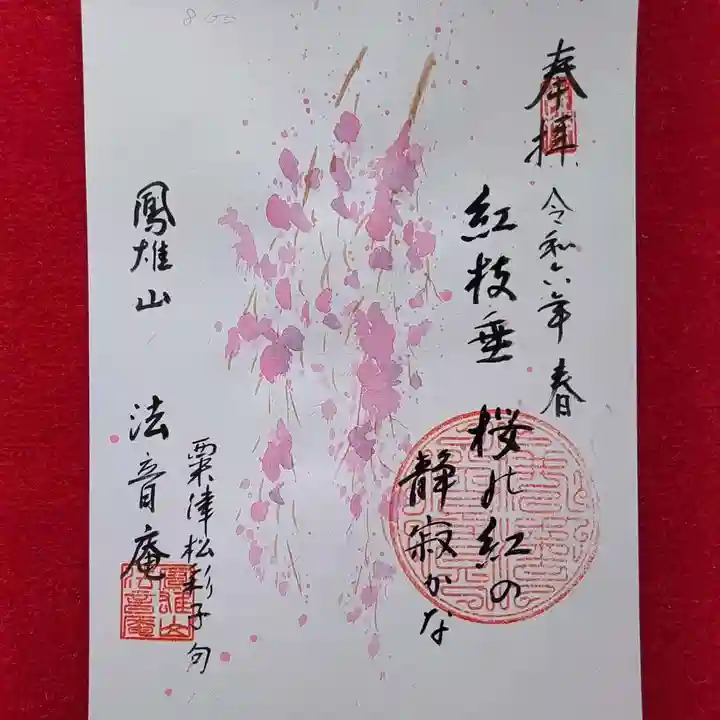 奉拝
令和六年 春
紅枝垂 桜の紅の
静寂かな
粟津松彩子 句
鳳雄山 法音庵
800